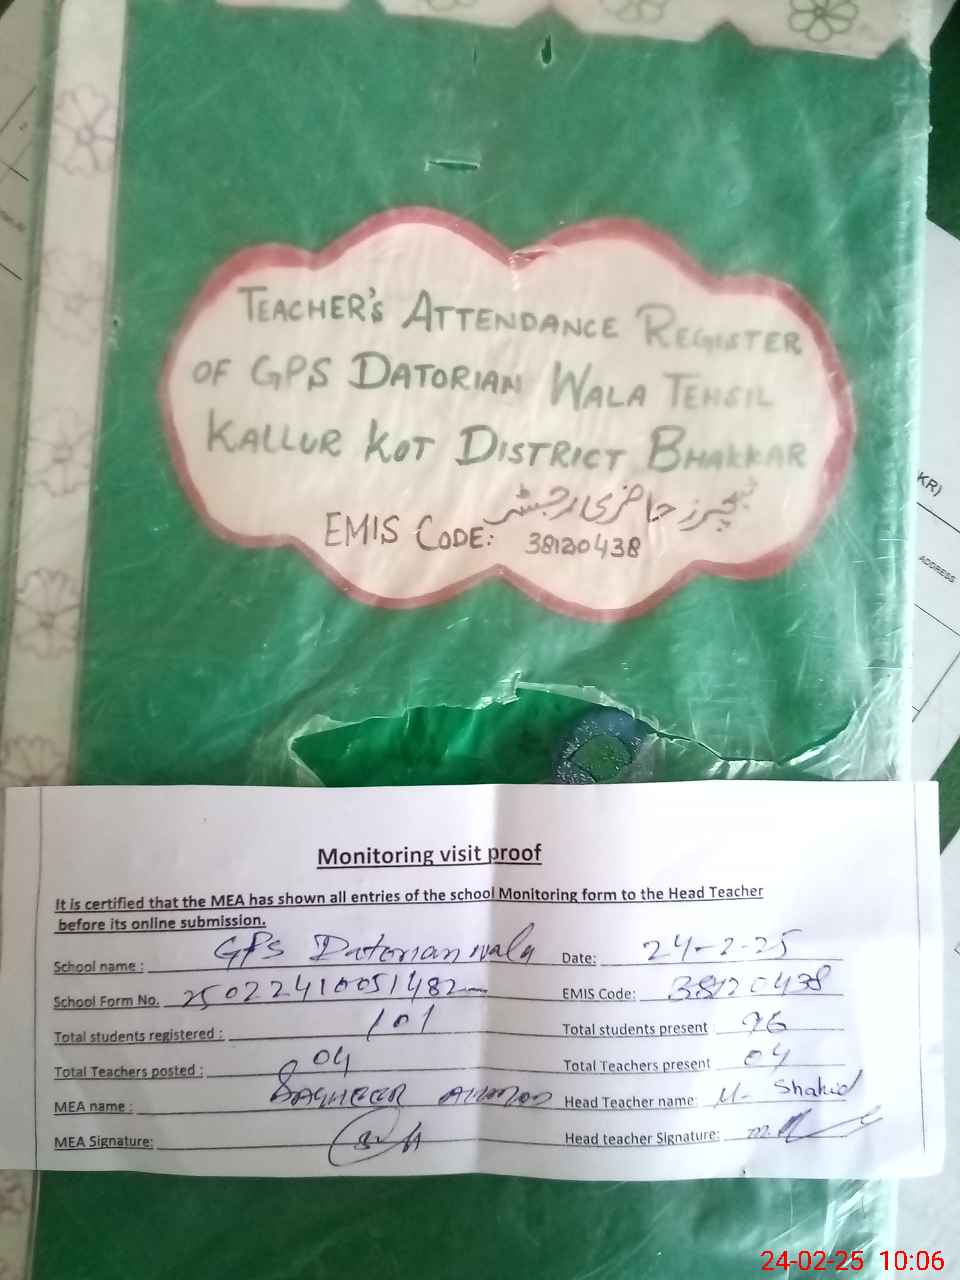 TEACHER'S ATTENDANCE REGISTER
OF GPS DATORIAN WALA TEHSIL
KALLUR KOT DISTRICT BHAKKAR
ٹیچرز حاضری رجسٹر
EMIS CODE: 38120438
KR)
ADDRESS
Monitoring visit proof
It is certified that the MEA has shown all entries of the school Monitoring form to the Head Teacher
before its online submission.
School name : GPS Datorian wala Date: 24-2-25
School Form No. 25022410051482 EMIS Code: 38120438
Total students registered : 101 Total students present 96
Total Teachers posted : 04 Total Teachers present 04
MEA name : SAGHEER AHMAD Head Teacher name: M. Shahid
MEA Signature: Head teacher Signature:
24-02-25 10:06